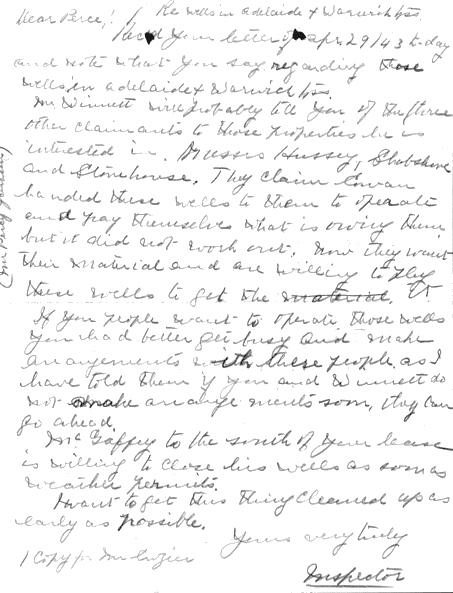 Dear Perce, / Re wells in Adelaide & Warwick tps.
Recd your letter of Apr 29/43 to-day
and note what you say regarding those
wells in Adelaide & Warwick tps.
Mr Winnett will probably tell you of the three
other claimants to those properties he is
interested in. Messrs Hussey,
and Stonehouse. They claim Cowan
handed these wells to them to operate
and pay themselves what is owing them
but it did not work out. Now they want
their material and are willing to plug
these wells to get the material.
If you people want to operate those wells
you had better get busy and make
arrangements with these people as I
have told them if you and Winnett do
not make arrangements soon, they can
go ahead.
McGaffey to the south of your lease
is willing to close his wells as soon as
weather permits.
I want to get this thing cleaned up as
early as possible.
Yours very truly
1 Copy for Mr Crozier
Inspector
(Mr Percy)